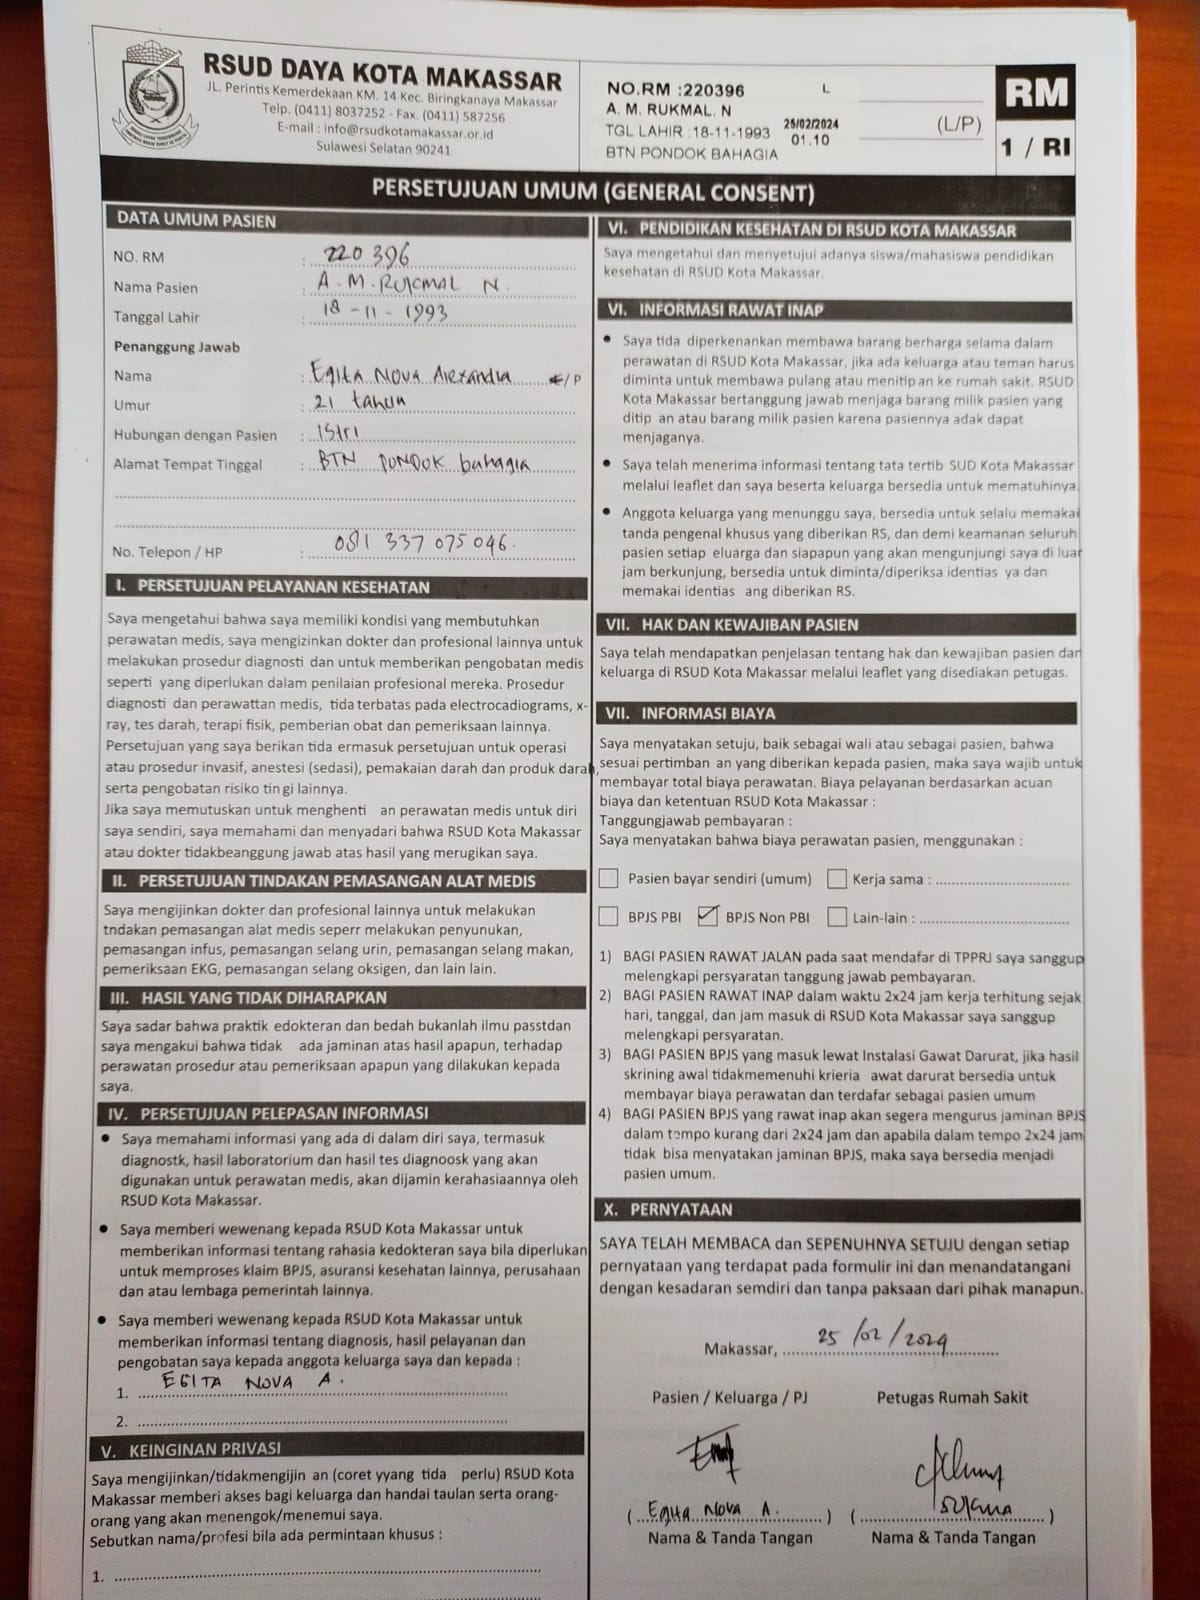 RSUD DAYA KOTA MAKASSAR
JL. Perintis Kemerdekaan KM. 14 Kec. Biringkanaya Makassar
Telp. (0411) 8037252 - Fax. (0411) 587256
E-mail : info@rsudkotamakassar.or.id
Sulawesi Selatan 90241
NO.RM :220396 L
A. M. RUKMAL. N
TGL LAHIR :18-11-1993 25/02/2024 01.10
BTN PONDOK BAHAGIA
(L/P)
RM
1 / RI
PERSETUJUAN UMUM (GENERAL CONSENT)
DATA UMUM PASIEN
NO. RM : 220 396
Nama Pasien : A. M. RUKMAL N.
Tanggal Lahir : 18 - 11 - 1993
Penanggung Jawab
Nama : Egita Nova Alexandra L/P
Umur : 21 tahun
Hubungan dengan Pasien : Istri
Alamat Tempat Tinggal : BTN PONDOK bahagia
No. Telepon / HP : 081 337 075 046.
I. PERSETUJUAN PELAYANAN KESEHATAN
Saya mengetahui bahwa saya memiliki kondisi yang membutuhkan
perawatan medis, saya mengizinkan dokter dan profesional lainnya untuk
melakukan prosedur diagnosti dan untuk memberikan pengobatan medis
seperti yang diperlukan dalam penilaian profesional mereka. Prosedur
diagnosti dan perawattan medis, tida terbatas pada electrocadiograms, x-
ray, tes darah, terapi fisik, pemberian obat dan pemeriksaan lainnya.
Persetujuan yang saya berikan tida ermasuk persetujuan untuk operasi
atau prosedur invasif, anestesi (sedasi), pemakaian darah dan produk darah,
serta pengobatan risiko tin gi lainnya.
Jika saya memutuskan untuk menghenti an perawatan medis untuk diri
saya sendiri, saya memahami dan menyadari bahwa RSUD Kota Makassar
atau dokter tidakbeanggung jawab atas hasil yang merugikan saya.
II. PERSETUJUAN TINDAKAN PEMASANGAN ALAT MEDIS
Saya mengijinkan dokter dan profesional lainnya untuk melakukan
tndakan pemasangan alat medis seperr melakukan penyunukan,
pemasangan infus, pemasangan selang urin, pemasangan selang makan,
pemeriksaan EKG, pemasangan selang oksigen, dan lain lain.
III. HASIL YANG TIDAK DIHARAPKAN
Saya sadar bahwa praktik edokteran dan bedah bukanlah ilmu passtdan
saya mengakui bahwa tidak ada jaminan atas hasil apapun, terhadap
perawatan prosedur atau pemeriksaan apapun yang dilakukan kepada
saya.
IV. PERSETUJUAN PELEPASAN INFORMASI
• Saya memahami informasi yang ada di dalam diri saya, termasuk
diagnostk, hasil laboratorium dan hasil tes diagnoosk yang akan
digunakan untuk perawatan medis, akan dijamin kerahasiaannya oleh
RSUD Kota Makassar.
• Saya memberi wewenang kepada RSUD Kota Makassar untuk
memberikan informasi tentang rahasia kedokteran saya bila diperlukan
untuk memproses klaim BPJS, asuransi kesehatan lainnya, perusahaan
dan atau lembaga pemerintah lainnya.
• Saya memberi wewenang kepada RSUD Kota Makassar untuk
memberikan informasi tentang diagnosis, hasil pelayanan dan
pengobatan saya kepada anggota keluarga saya dan kepada :
1. EGITA NOVA A.
2.
V. KEINGINAN PRIVASI
Saya mengijinkan/tidakmengijin an (coret yyang tida perlu) RSUD Kota
Makassar memberi akses bagi keluarga dan handai taulan serta orang-
orang yang akan menengok/menemui saya.
Sebutkan nama/profesi bila ada permintaan khusus :
1.
VI. PENDIDIKAN KESEHATAN DI RSUD KOTA MAKASSAR
Saya mengetahui dan menyetujui adanya siswa/mahasiswa pendidikan
kesehatan di RSUD Kota Makassar.
VI. INFORMASI RAWAT INAP
• Saya tida diperkenankan membawa barang berharga selama dalam
perawatan di RSUD Kota Makassar, jika ada keluarga atau teman harus
diminta untuk membawa pulang atau menitip an ke rumah sakit. RSUD
Kota Makassar bertanggung jawab menjaga barang milik pasien yang
ditip an atau barang milik pasien karena pasiennya adak dapat
menjaganya.
• Saya telah menerima informasi tentang tata tertib SUD Kota Makassar
melalui leaflet dan saya beserta keluarga bersedia untuk mematuhinya.
• Anggota keluarga yang menunggu saya, bersedia untuk selalu memakai
tanda pengenal khusus yang diberikan RS, dan demi keamanan seluruh
pasien setiap eluarga dan siapapun yang akan mengunjungi saya di luar
jam berkunjung, bersedia untuk diminta/diperiksa identias ya dan
memakai identias ang diberikan RS.
VII. HAK DAN KEWAJIBAN PASIEN
Saya telah mendapatkan penjelasan tentang hak dan kewajiban pasien dan
keluarga di RSUD Kota Makassar melalui leaflet yang disediakan petugas.
VII. INFORMASI BIAYA
Saya menyatakan setuju, baik sebagai wali atau sebagai pasien, bahwa
sesuai pertimban an yang diberikan kepada pasien, maka saya wajib untuk
membayar total biaya perawatan. Biaya pelayanan berdasarkan acuan
biaya dan ketentuan RSUD Kota Makassar :
Tanggungjawab pembayaran :
Saya menyatakan bahwa biaya perawatan pasien, menggunakan :
Pasien bayar sendiri (umum) Kerja sama :
BPJS PBI BPJS Non PBI Lain-lain :
1) BAGI PASIEN RAWAT JALAN pada saat mendafar di TPPRJ saya sanggup
melengkapi persyaratan tanggung jawab pembayaran.
2) BAGI PASIEN RAWAT INAP dalam waktu 2x24 jam kerja terhitung sejak
hari, tanggal, dan jam masuk di RSUD Kota Makassar saya sanggup
melengkapi persyaratan.
3) BAGI PASIEN BPJS yang masuk lewat Instalasi Gawat Darurat, jika hasil
skrining awal tidakmemenuhi krieria awat darurat bersedia untuk
membayar biaya perawatan dan terdafar sebagai pasien umum
4) BAGI PASIEN BPJS yang rawat inap akan segera mengurus jaminan BPJS
dalam tempo kurang dari 2x24 jam dan apabila dalam tempo 2x24 jam
tidak bisa menyatakan jaminan BPJS, maka saya bersedia menjadi
pasien umum.
X. PERNYATAAN
SAYA TELAH MEMBACA dan SEPENUHNYA SETUJU dengan setiap
pernyataan yang terdapat pada formulir ini dan menandatangani
dengan kesadaran semdiri dan tanpa paksaan dari pihak manapun.
Makassar, 25 /02 /2024
Pasien / Keluarga / PJ Petugas Rumah Sakit
( Egita Nova A. ) ( )
Nama & Tanda Tangan Nama & Tanda Tangan